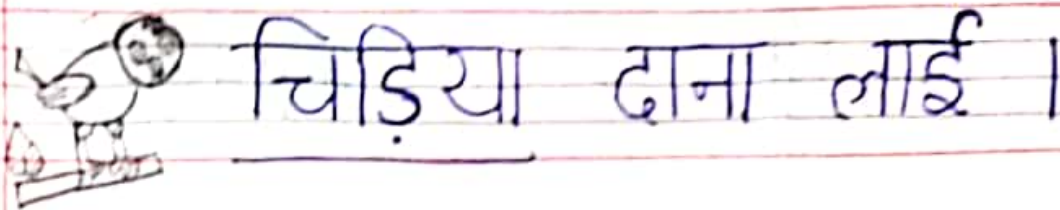 चिड़िया दाना लाई।